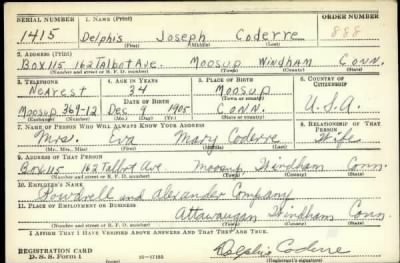 SERIAL NUMBER 1. NAME (Print) ORDER NUMBER
1415 Delphis Joseph Coderre 888
(First) (Middle) (Last)
2. ADDRESS (Print)
Box 115 162 Talbot Ave. Moosup Windham Conn.
(Number and street or R. F. D. number) (Town) (County) (State)
3. TELEPHONE 4. AGE IN YEARS 5. PLACE OF BIRTH 6. COUNTRY OF CITIZENSHIP
Nearest 34 Moosup
DATE OF BIRTH (Town or county)
Moosup 369-12 Dec 9 1905 Conn. U.S.A.
(Exchange) (Number) (Mo.) (Day) (Yr.) (State or country)
7. NAME OF PERSON WHO WILL ALWAYS KNOW YOUR ADDRESS 8. RELATIONSHIP OF THAT PERSON
Mrs. Eva Mary Coderre Wife
(Mr., Mrs., Miss) (First) (Middle) (Last)
9. ADDRESS OF THAT PERSON
Box 115 162 Talbot Ave Moosup Windham Conn
(Number and street or R. F. D. number) (Town) (County) (State)
10. EMPLOYER'S NAME
and Alexander Company
11. PLACE OF EMPLOYMENT OR BUSINESS
Attawaugan Windham Conn
(Number and street or R. F. D. number) (Town) (County) (State)
I AFFIRM THAT I HAVE VERIFIED ABOVE ANSWERS AND THAT THEY ARE TRUE.
REGISTRATION CARD
D. S. S. Form 1 16-17105 Delphis Coderre
(Registrant's signature)